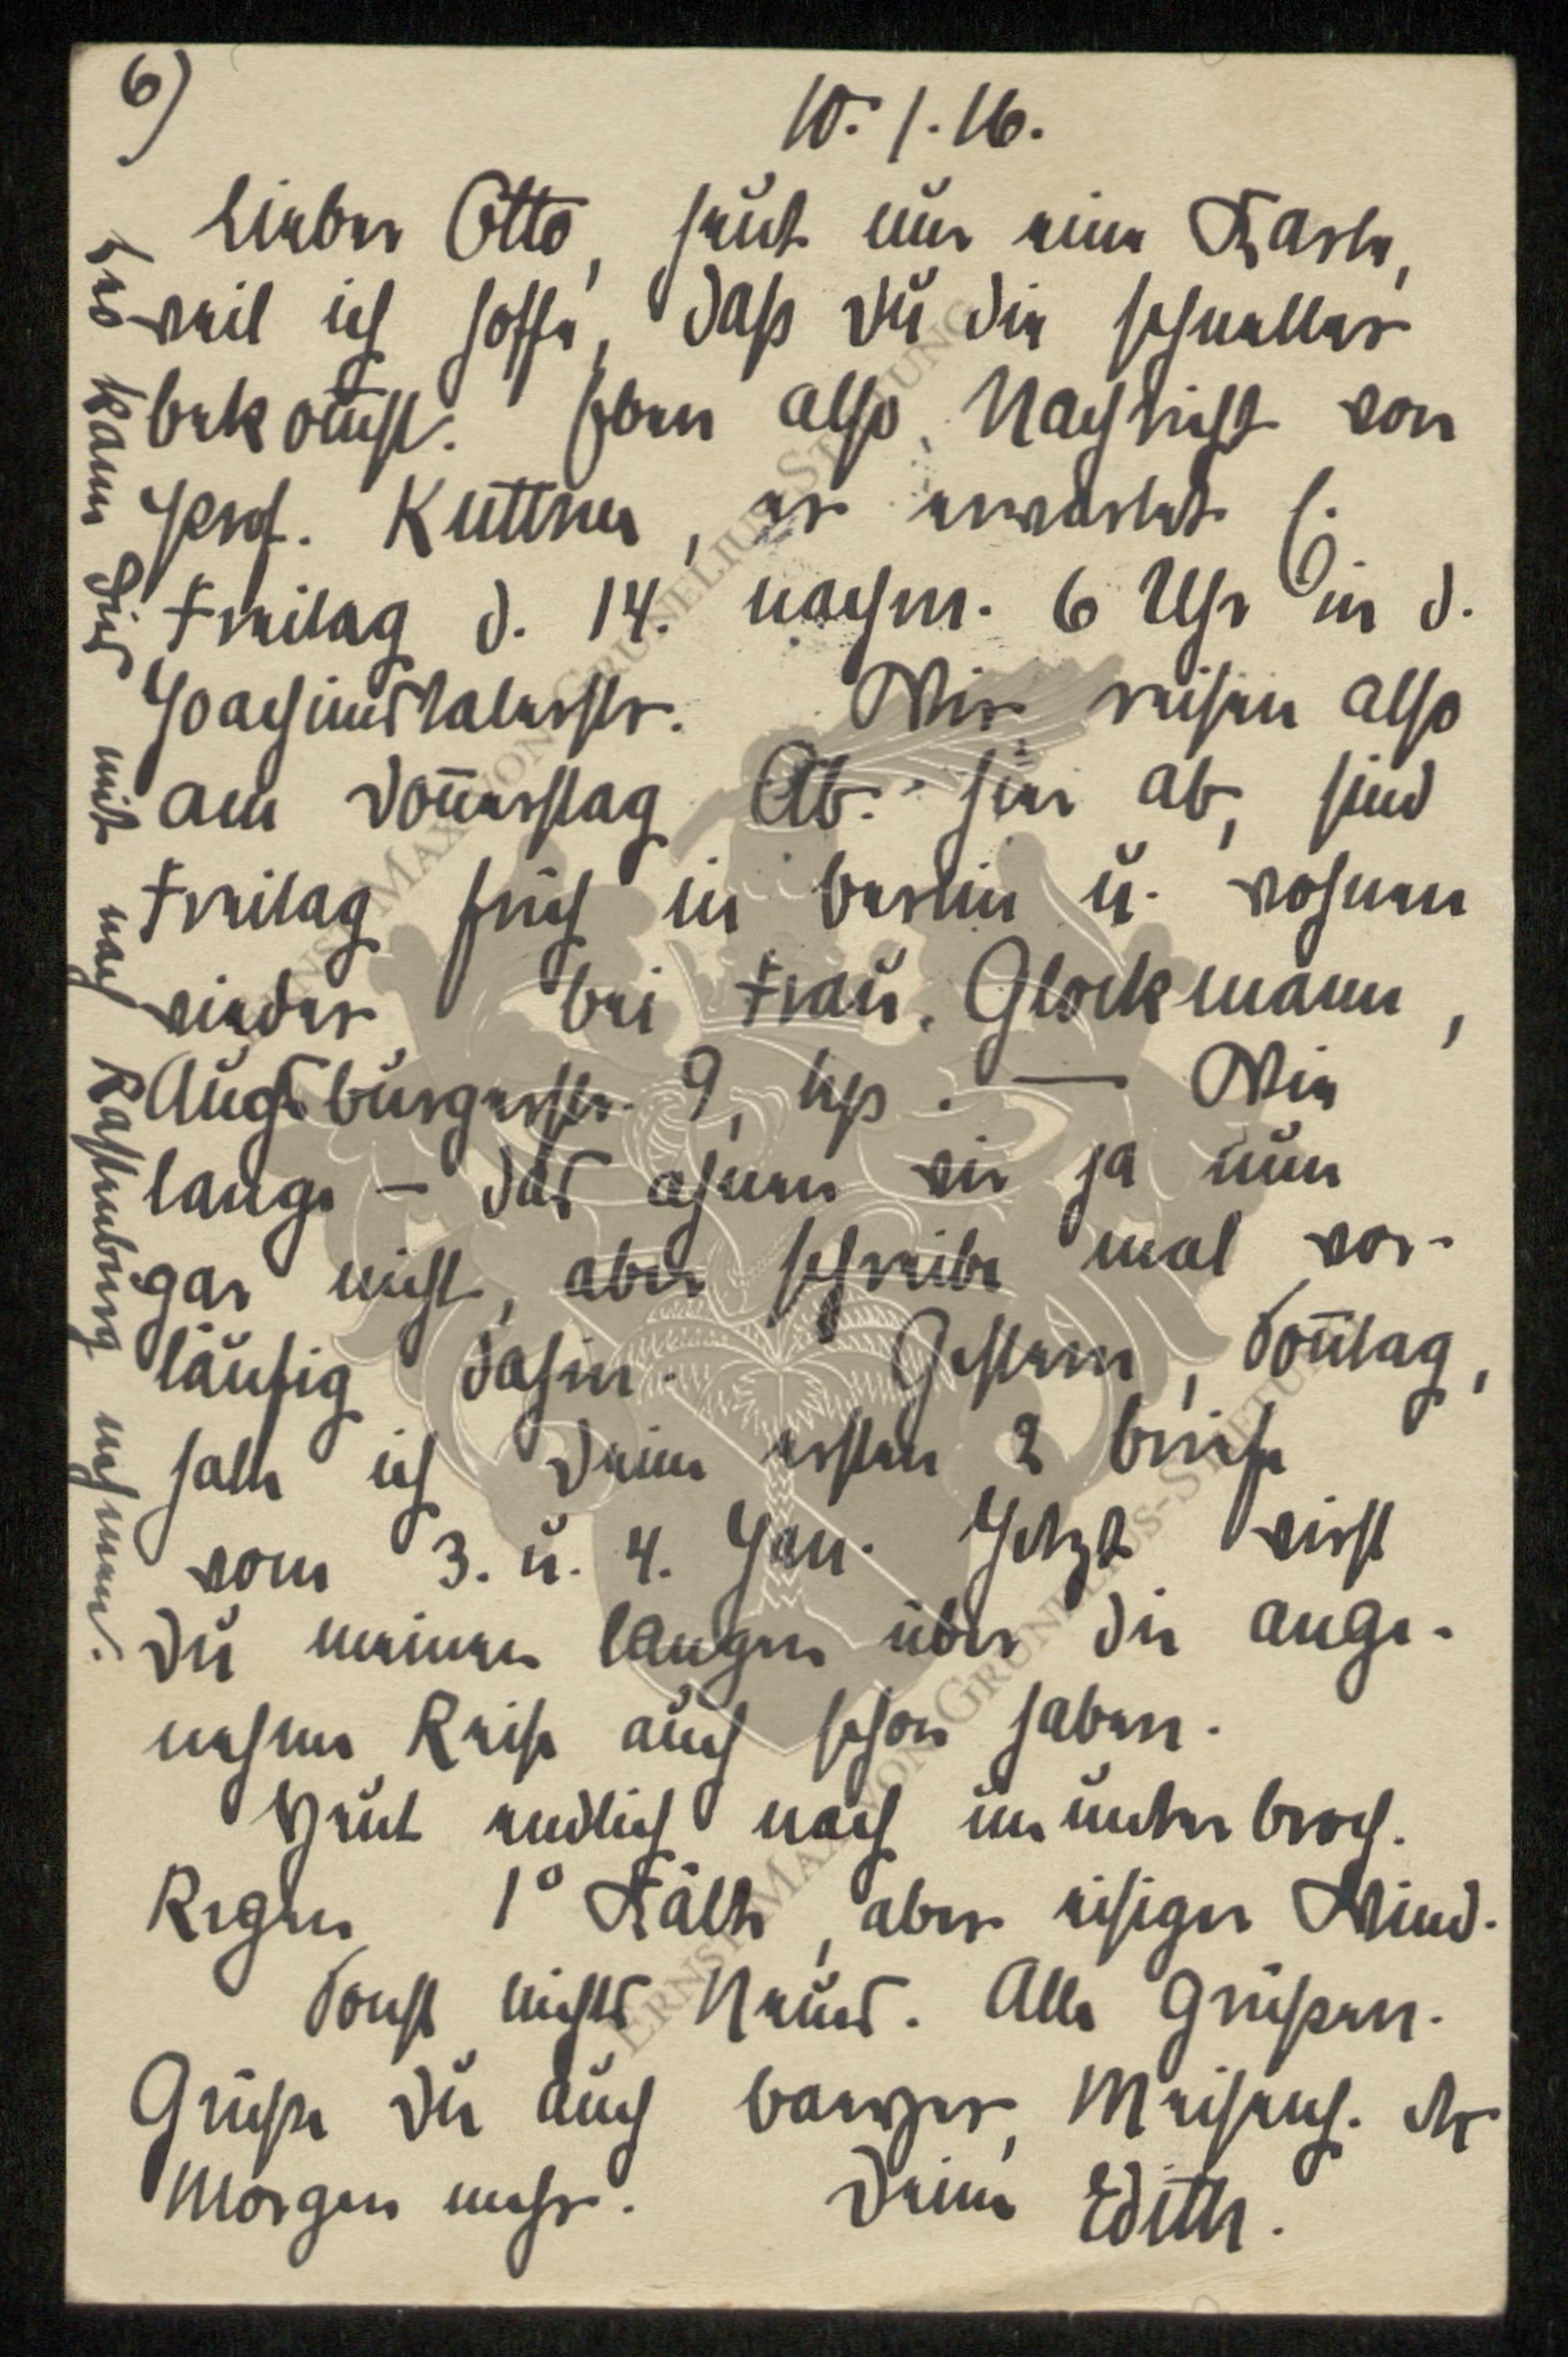 6)
10.1.16.
Lieber Otto, heut nur eine Karte,
weil ich hoffe, daß Du die schneller
bekom̅st. Eben also Nachricht von
Prof. Kuttner, er erwartet E.
Freitag d. 14. nachm. 6 Uhr in d.
Joachimsthalerstr. Wir reisen also
am Don̅erstag Ab. hier ab, sind
Freitag früh in Berlin u. wohnen
wieder bei Frau Glockmann,
Augsburgerstr. 9, hp. — Wie
lange – das ahnen wir ja nun
gar nicht, aber schreibe mal vor-
läufig dahin. Gestern, Son̅tag,
hatte ich Deine ersten 2 Briefe
vom 3. u. 4. Jan. Jetzt wirst
Du meinen langen über die ange-
nehme Reise auch schon haben.
Heut endlich nach ununterbroch.
Regen 1° Kälte, aber eisiger Wind.
Sonst nichts Neues. Alle grüßen.
Grüße Du auch Meisench. etc
Morgen mehr. Deine Edith.
Leo kann Dir mit nach Rastenburg nehmen.
ERNST MAX VON GRUNELIUS-STIFTUNG
ERNST MAX VON GRUNELIUS-STIFTUNG